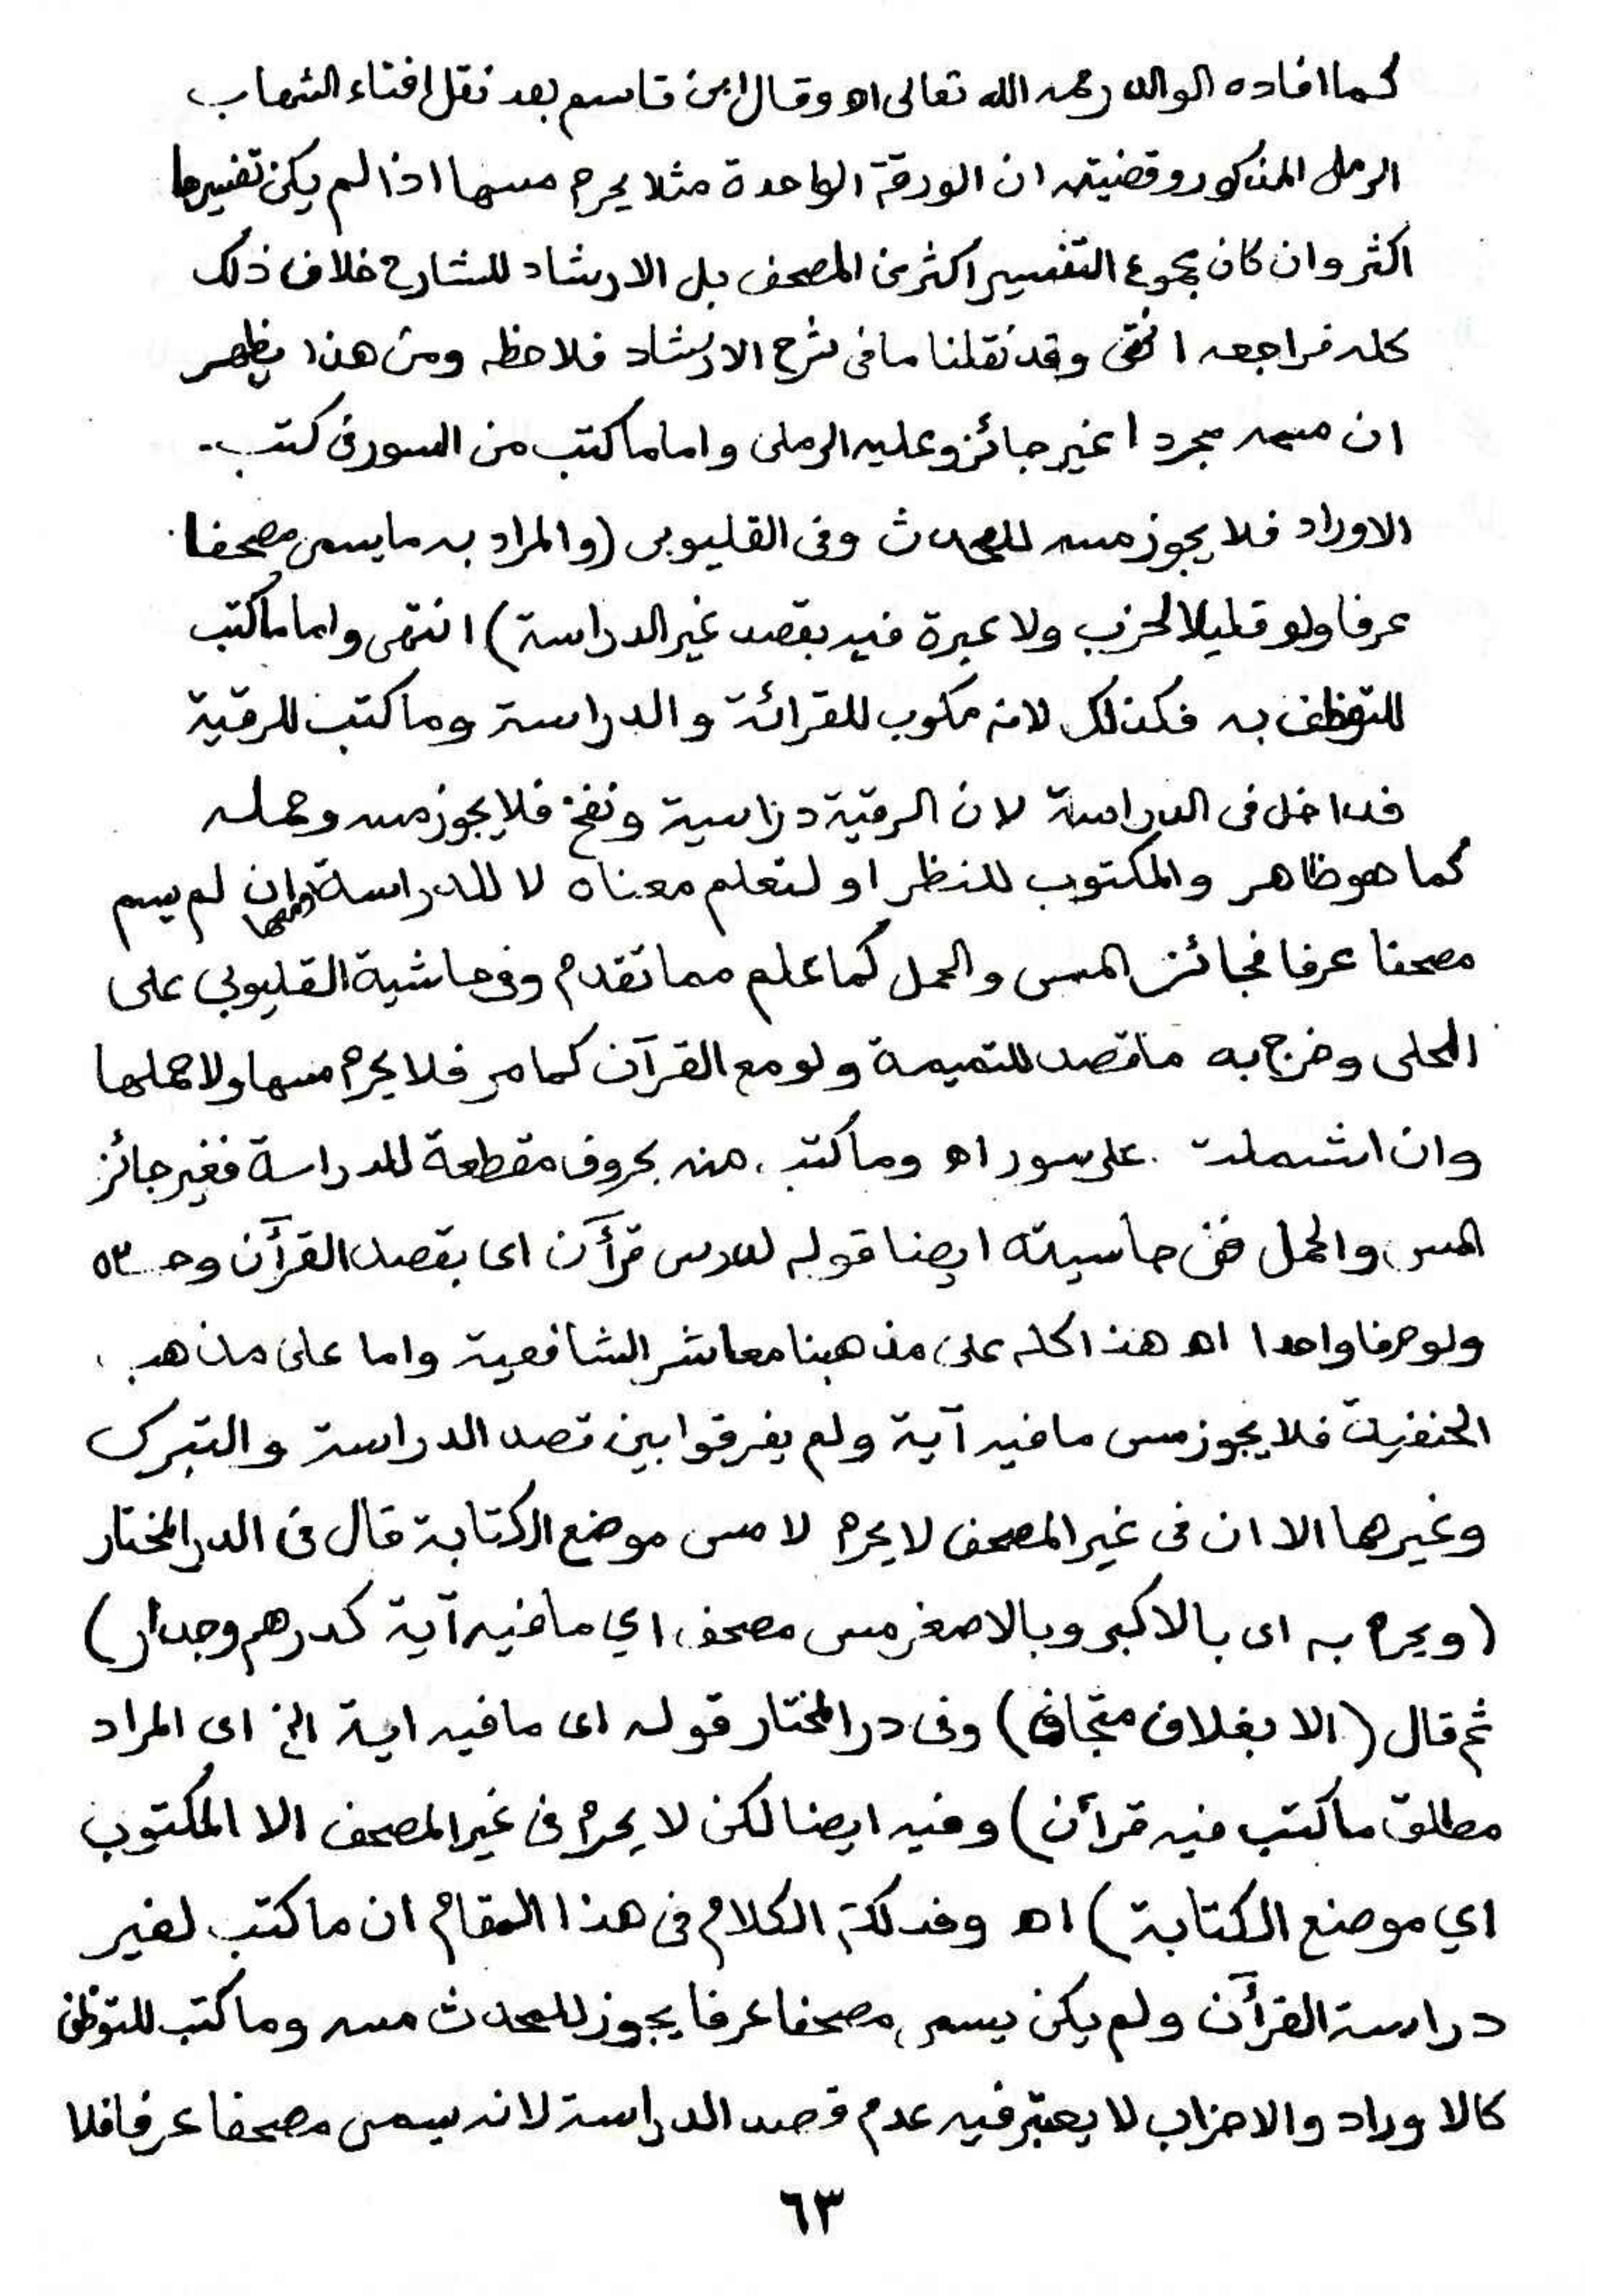 كما افاده الوالد رحمه الله تعالى اه وقال ابن قاسم بعد نقل افتاء الشهاب
الرملى المذكور وقضيته ان الورقة الواحدة مثلا يحرم مسها اذا لم يكن تفسيرها
اكثر وان كان مجموع التفسير اكثر من المصحف بل الارشاد للشارح خلاف ذلك
كله فراجعه انتهى وقد نقلنا ما فى شرح الارشاد فلاحظه ومن هذا يظهر
ان مسه مجردا غير جائز وعليه الرملى واما ما كتب من السور فى كتب
الاوراد فلا يجوز مسه للمحدث وفى القليوبى (والمراد به ما يسمى مصحفا
عرفا ولو قليلا لحزب ولا عبرة فيه بقصد غير الدراسة) انتهى واما ما كتب
للتوظف به فكذلك لانه مكوب للقرائة والدراسة وما كتب للرقية
فداخل فى الدراسة لان الرقية دراسية ونفخ فلا يجوز مسه وحمله
كما هو ظاهر والمكتوب للنظر او لتعلم معناه لا للدراسة وان لم يسم
مصحفا عرفا فجائز المس والحمل كما علم مما تقدم وفى حاشية القليوبي على
المحلى وخرج به ما قصد للتميمة ولو مع القرآن كما مر فلا يحرم مسها ولا حملها
وان اشملت على سور اه وما كتب منه بحروف مقطعة للدراسة فغير جائز
المس والحمل ففى حاسيته ايضا قوله لدرس قرأن اى بقصد القرأن وحده
ولو حرفا واحدا اه هذا كله على مذهبنا معاشر الشافعية واما على مذهب
الحنفية فلا يجوز مس ما فيه آية ولم يفرقوا بين قصد الدراسة والتبرك
وغيرهما الا ان فى غير المصحف لا يحرم لا مس موضع الكتابة قال فى الدر المختار
(ويحرم به اى بالاكبر وبالاصغر مس مصحف اي ما فيه آية كدرهم وجدار)
ثم قال (الا بغلاف متجاف) وفى در المختار قوله اى ما فيه اية الخ اى المراد
مطلق ما كتب فيه قرأن) وفيه ايضا لكن لا يحرم فى غير المصحف الا المكتوب
اي موضع الكتابة) اه وفذلكة الكلام فى هذا المقام ان ما كتب لغير
دراسة القرأن ولم يكن يسمى مصحفا عرفا يجوز للمحدث مسه وما كتب للتوظف
كالاوراد والاحزاب لا يعتبر فيه عدم قصد الدراسة لانه يسمى مصحفا عرفا فلا
٦٣